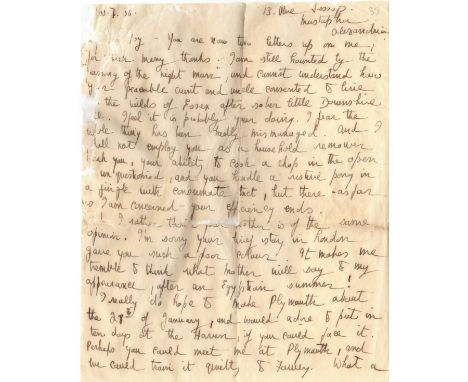 13. Rue Jessop.
Mustapha
Alexandria
39
Joy - You are now two letters up on me,
for ever many thanks. I am still haunted by the
of the night mare, and cannot understand how
your aunt and uncle consented to live
the wilds of Essex after sober little Downshire
I feel it is probably your doing. I fear the
whole thing has been badly mismanaged. And I
shall not employ you as a household remover
your ability to cook a chop in the open
unquestioned, and you handle a restive pony in
a jingle with consummate tact, but there - as far
as I am concerned - your efficiency ends.
I rather think your mother is of the same
opinion. I'm sorry your brief stay in London
gave you such a poor colour! It makes me
tremble to think what Mother will say to my
appearance, after an Egyptian summer!
I really do hope to make Plymouth about
the 28th of January, and would adore to put in
ten days at the Haven, if you could face it.
Perhaps you could meet me at Plymouth, and
we could train it quietly to Fowey. What a